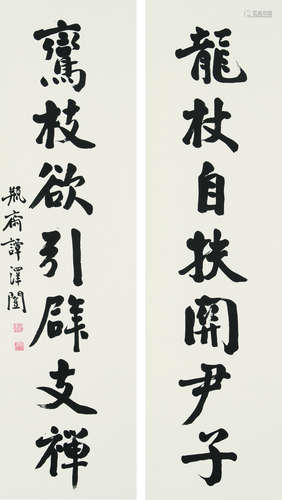 龍杖自扶關尹子
鸞枝欲引辟支禪
瓶齋譚澤闓